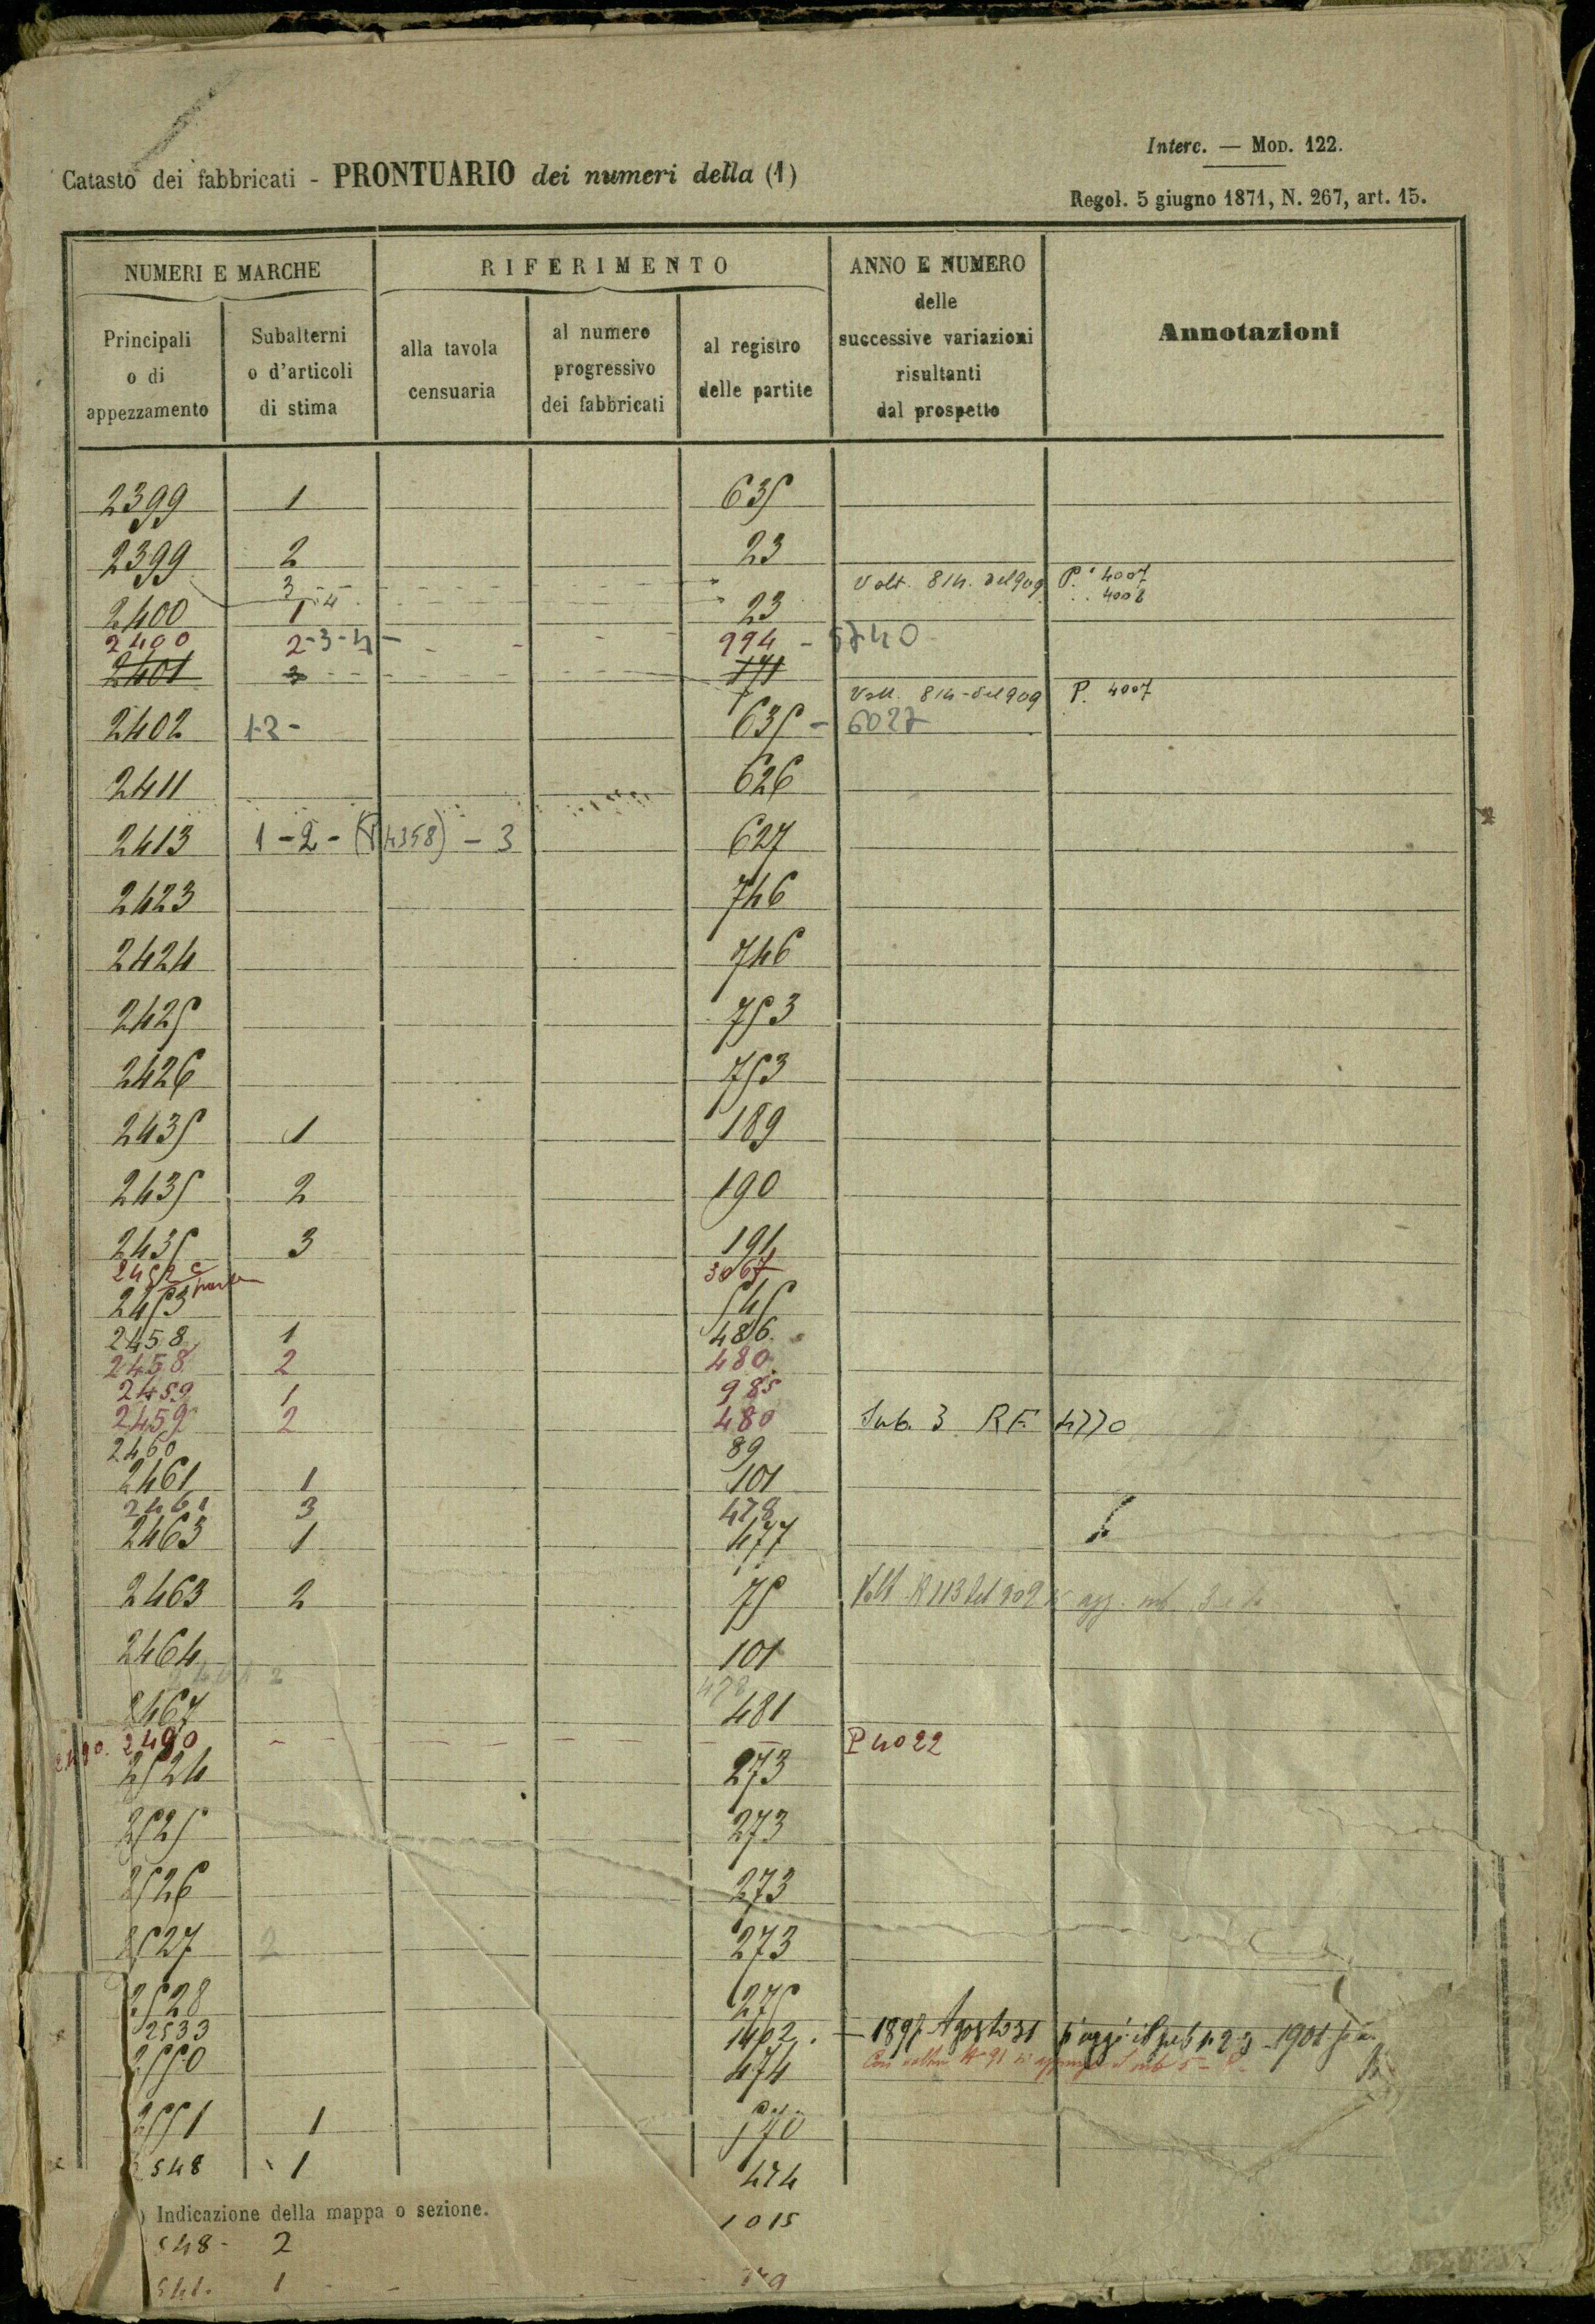 Interc. — Mod. 122.
Catasto dei fabbricati - PRONTUARIO dei numeri della (1)
Regol. 5 giugno 1871, N. 267, art. 15.
NUMERI E MARCHE
RIFERIMENTO
ANNO E NUMERO
delle
successive variazioni
risultanti
dal prospetto
Annotazioni
Principali
o di
appezzamento
Subalterni
o d'articoli
di stima
alla tavola
censuaria
al numero
progressivo
dei fabbricati
al registro
delle partite
2399 1 635
2399 2 23
3 - 4 Volt. 814. del 909 P. 4007
4006
2400 1 23
2400 2-3-4 - 994 - 5740
2401 3 171
Volt. 814 - del 909 P. 4007
2402 1-2 - 635 - 6027
2411 626
2413 1-2-(P 4358) - 3 627
2423 746
2424 746
2425 753
2426 753
2435 1 189
2435 2 190
2435 3 191
2452 parte 3067
2453 545
2458 1 486
2458 2 480
2459 1 985
2459 2 480 Sub. 3 R.F. 4770
2460 89
2461 1 101
2461 3 478
2463 1 477
2463 2 75 Volt. 113 del 909 agg.
2464 101
2 478
2467 481
2490. 2490 P 4022
2524 273
2525 273
2526 273
2527 2 273
2528 275
2533 1402. — 1897 Agosto 31 1901
2550 474 91 sub 5
2551 1 570
548 1 474
) Indicazione della mappa o sezione.
1015
548 - 2
1